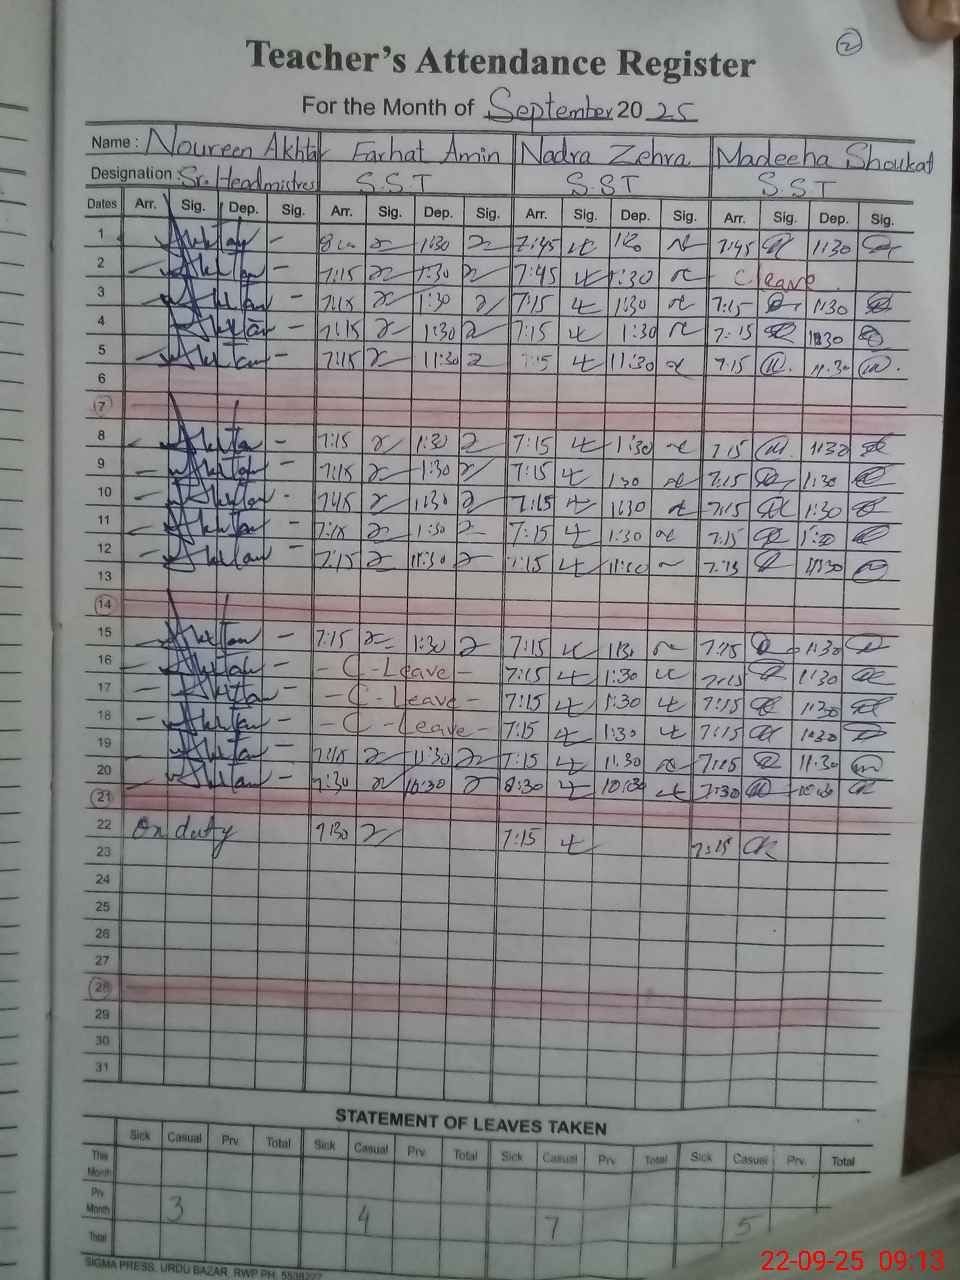 2
Teacher's Attendance Register
For the Month of September 2025
Name : Noureen Akhtar Farhat Amin Nadra Zehra Madeeha Shoukat
Designation : Sr. Headmistres S.S.T S.S.T S.S.T
Dates Arr. Sig. Dep. Sig. Arr. Sig. Dep. Sig. Arr. Sig. Dep. Sig. Arr. Sig. Dep. Sig.
1 Akhtar - 1:30 7:45 7:45 1:30
2 Akhtar - 7:15 1:30 7:45 1:30 C leave
3 Akhtar - 7:15 1:30 7:15 1:30 7:15 1:30
4 Akhtar - 7:15 1:30 7:15 1:30 7:15 1:30
5 Akhtar - 7:15 11:30 7:15 11:30 7:15 11:30
6
7
8 Akhtar - 7:15 1:30 7:15 1:30 7:15 1:30
9 - Akhtar - 7:15 1:30 7:15 1:30 7:15 1:30
10 - Akhtar - 7:15 1:30 7:15 1:30 7:15 1:30
11 - Akhtar - 7:15 1:30 7:15 1:30 7:15
12 - Akhtar - 7:15 11:30 7:15 7:15 11:30
13
14
15 Akhtar - 7:15 1:30 7:15 1:30 7:15 1:30
16 - Akhtar - - C - Leave - 7:15 1:30 7:15 1:30
17 - Akhtar - - C - Leave - 7:15 1:30 7:15 1:30
18 - Akhtar - - C - Leave - 7:15 1:30 7:15 1:30
19 Akhtar - 7:15 11:30 7:15 11:30 7:15 11:30
20 Akhtar - 7:30 10:30 10:30 7:30 10:30
21
22 On duty 7:30 7:15 7:15
23
24
25
26
27
28
29
30
31
STATEMENT OF LEAVES TAKEN
Sick Casual Prv. Total Sick Casual Prv. Total Sick Casual Prv. Total Sick Casual Prv. Total
This Month
Prv. Month 3 4 7 5
Total
SIGMA PRESS, URDU BAZAR, RWP PH.
22-09-25 09:13